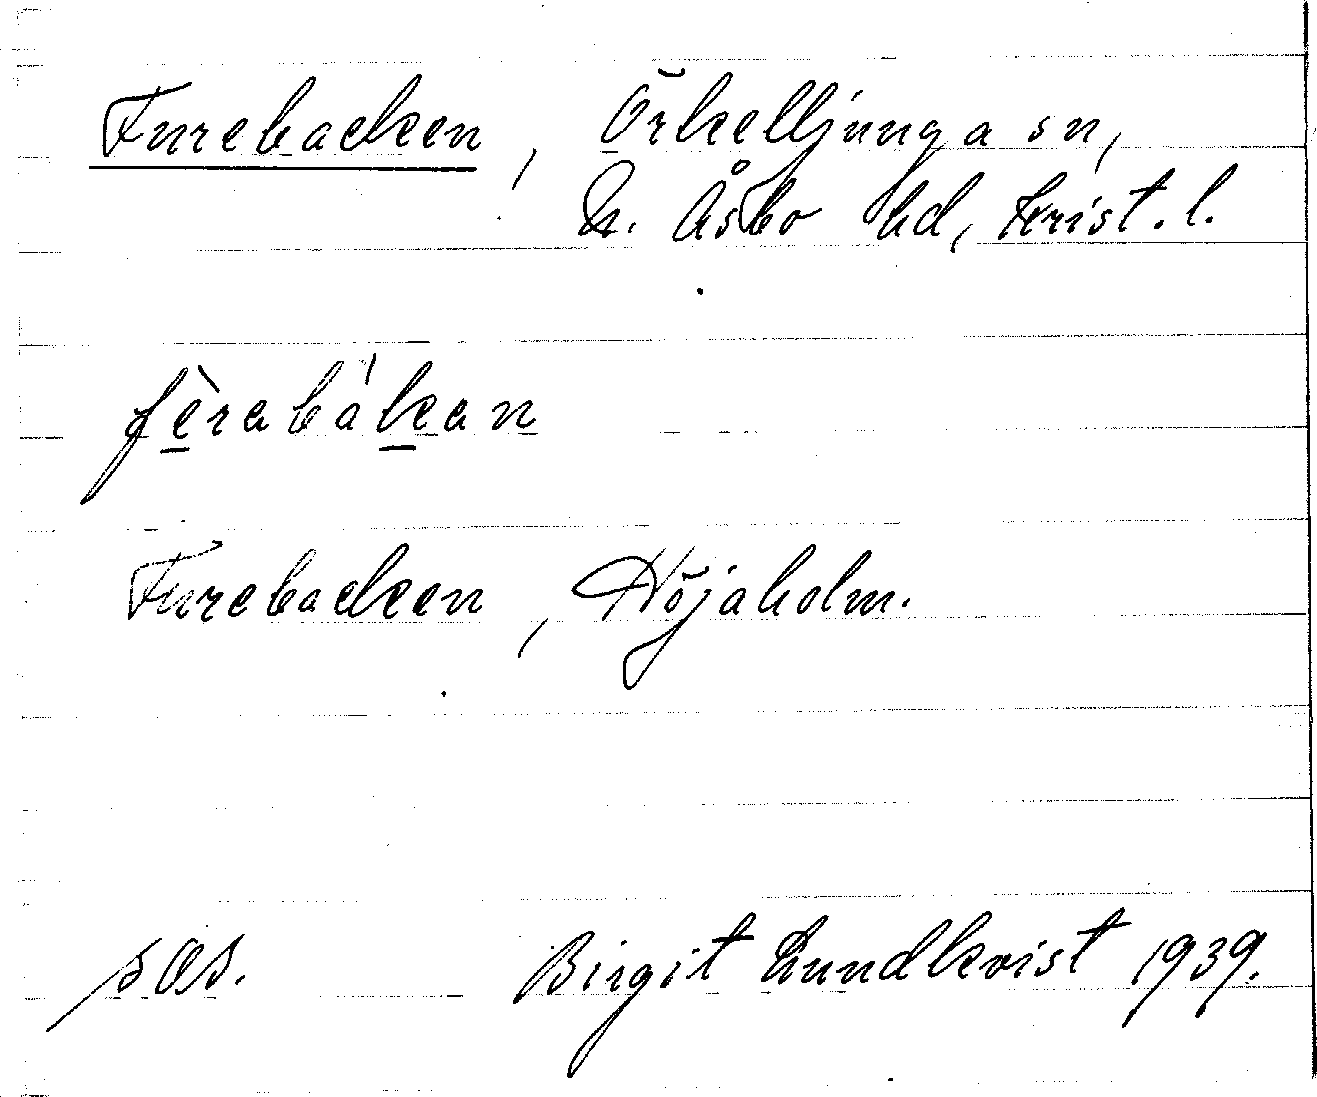 Furebacken, Örkelljunga sn,
N. Åsbo hd, Krist. l.
fèrabákan
Furebacken, Höjaholm.
sOs. Birgit Lundkvist 1939.